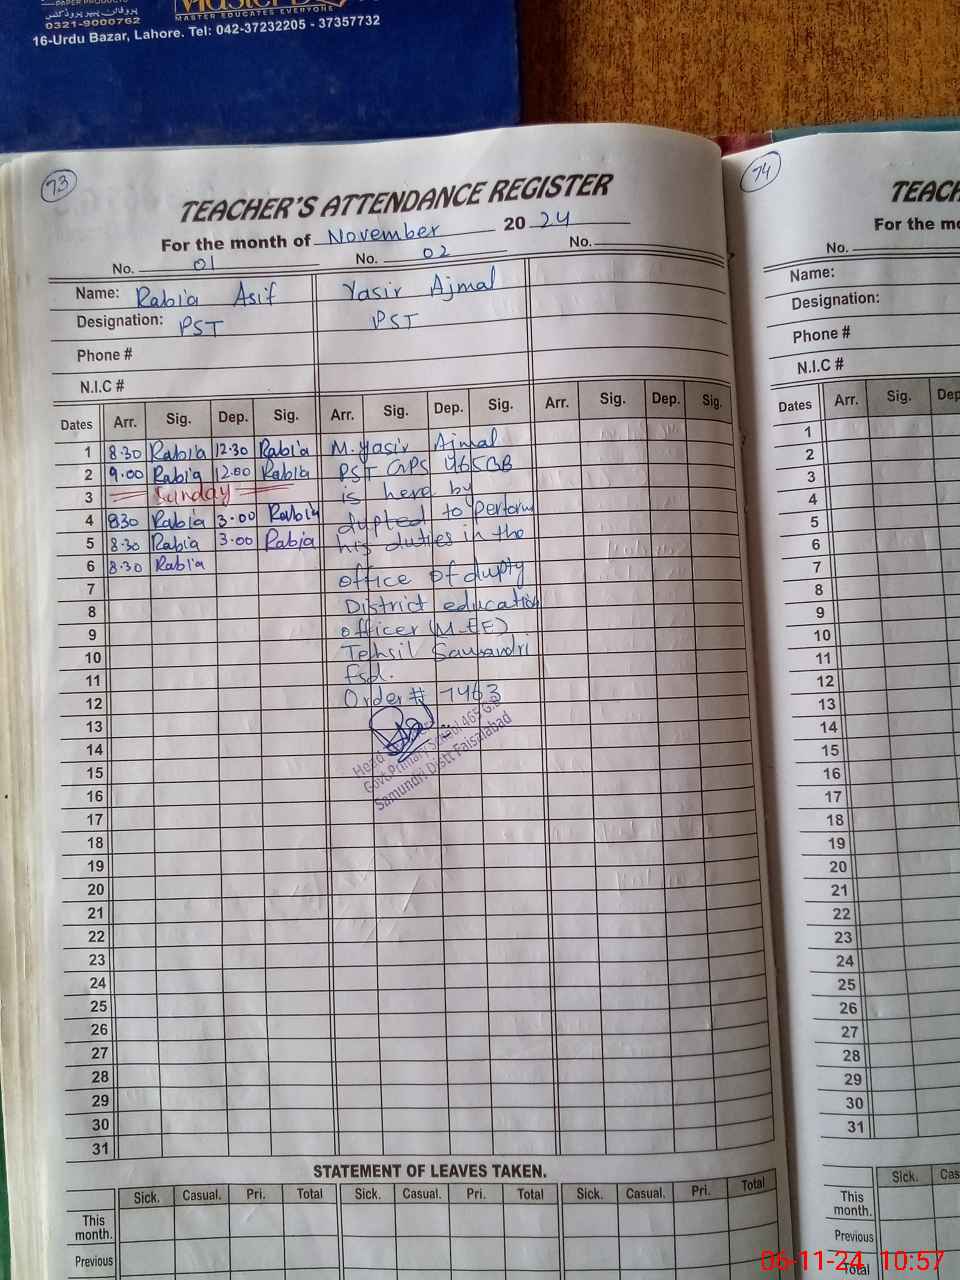 PAPER PRODUCTS
0321-9000762
MASTER EDUCATES EVERYONE
16-Urdu Bazar, Lahore. Tel: 042-37232205 - 37357732
73
TEACHER'S ATTENDANCE REGISTER
For the month of November 2024
No. 01 No. 02 No.
Name: Rabia Asif Yasir Ajmal
Designation: PST PST
Phone #
N.I.C #
Dates Arr. Sig. Dep. Sig. Arr. Sig. Dep. Sig. Arr. Sig. Dep. Sig.
1 8.30 Rabia 12.30 Rabia M. Yasir Ajmal
2 9.00 Rabia 12.00 Rabia PST GPS 465GB
3 Sunday is here by
4 830 Rabia 3.00 Rabia dupted to perform
5 8.30 Rabia 3.00 Rabia his duties in the
6 8.30 Rabia
7 office of dupty
8 District education
9 officer (M-EE)
10 Tehsil Samundri
11 Fsd.
12 Order # 7463
13
14 Head
15 Govt. Primary School 465 G.B
16 Samundri, Distt. Faisalabad
17
18
19
20
21
22
23
24
25
26
27
28
29
30
31
STATEMENT OF LEAVES TAKEN.
Sick. Casual. Pri. Total Sick. Casual. Pri. Total Sick. Casual. Pri. Total
This month.
Previous
74
TEACH
For the mo
No.
Name:
Designation:
Phone #
N.I.C #
Dates Arr. Sig. Dep
1
2
3
4
5
6
7
8
9
10
11
12
13
14
15
16
17
18
19
20
21
22
23
24
25
26
27
28
29
30
31
Sick. Cas
This month.
Previous
Total
06-11-24 10:57